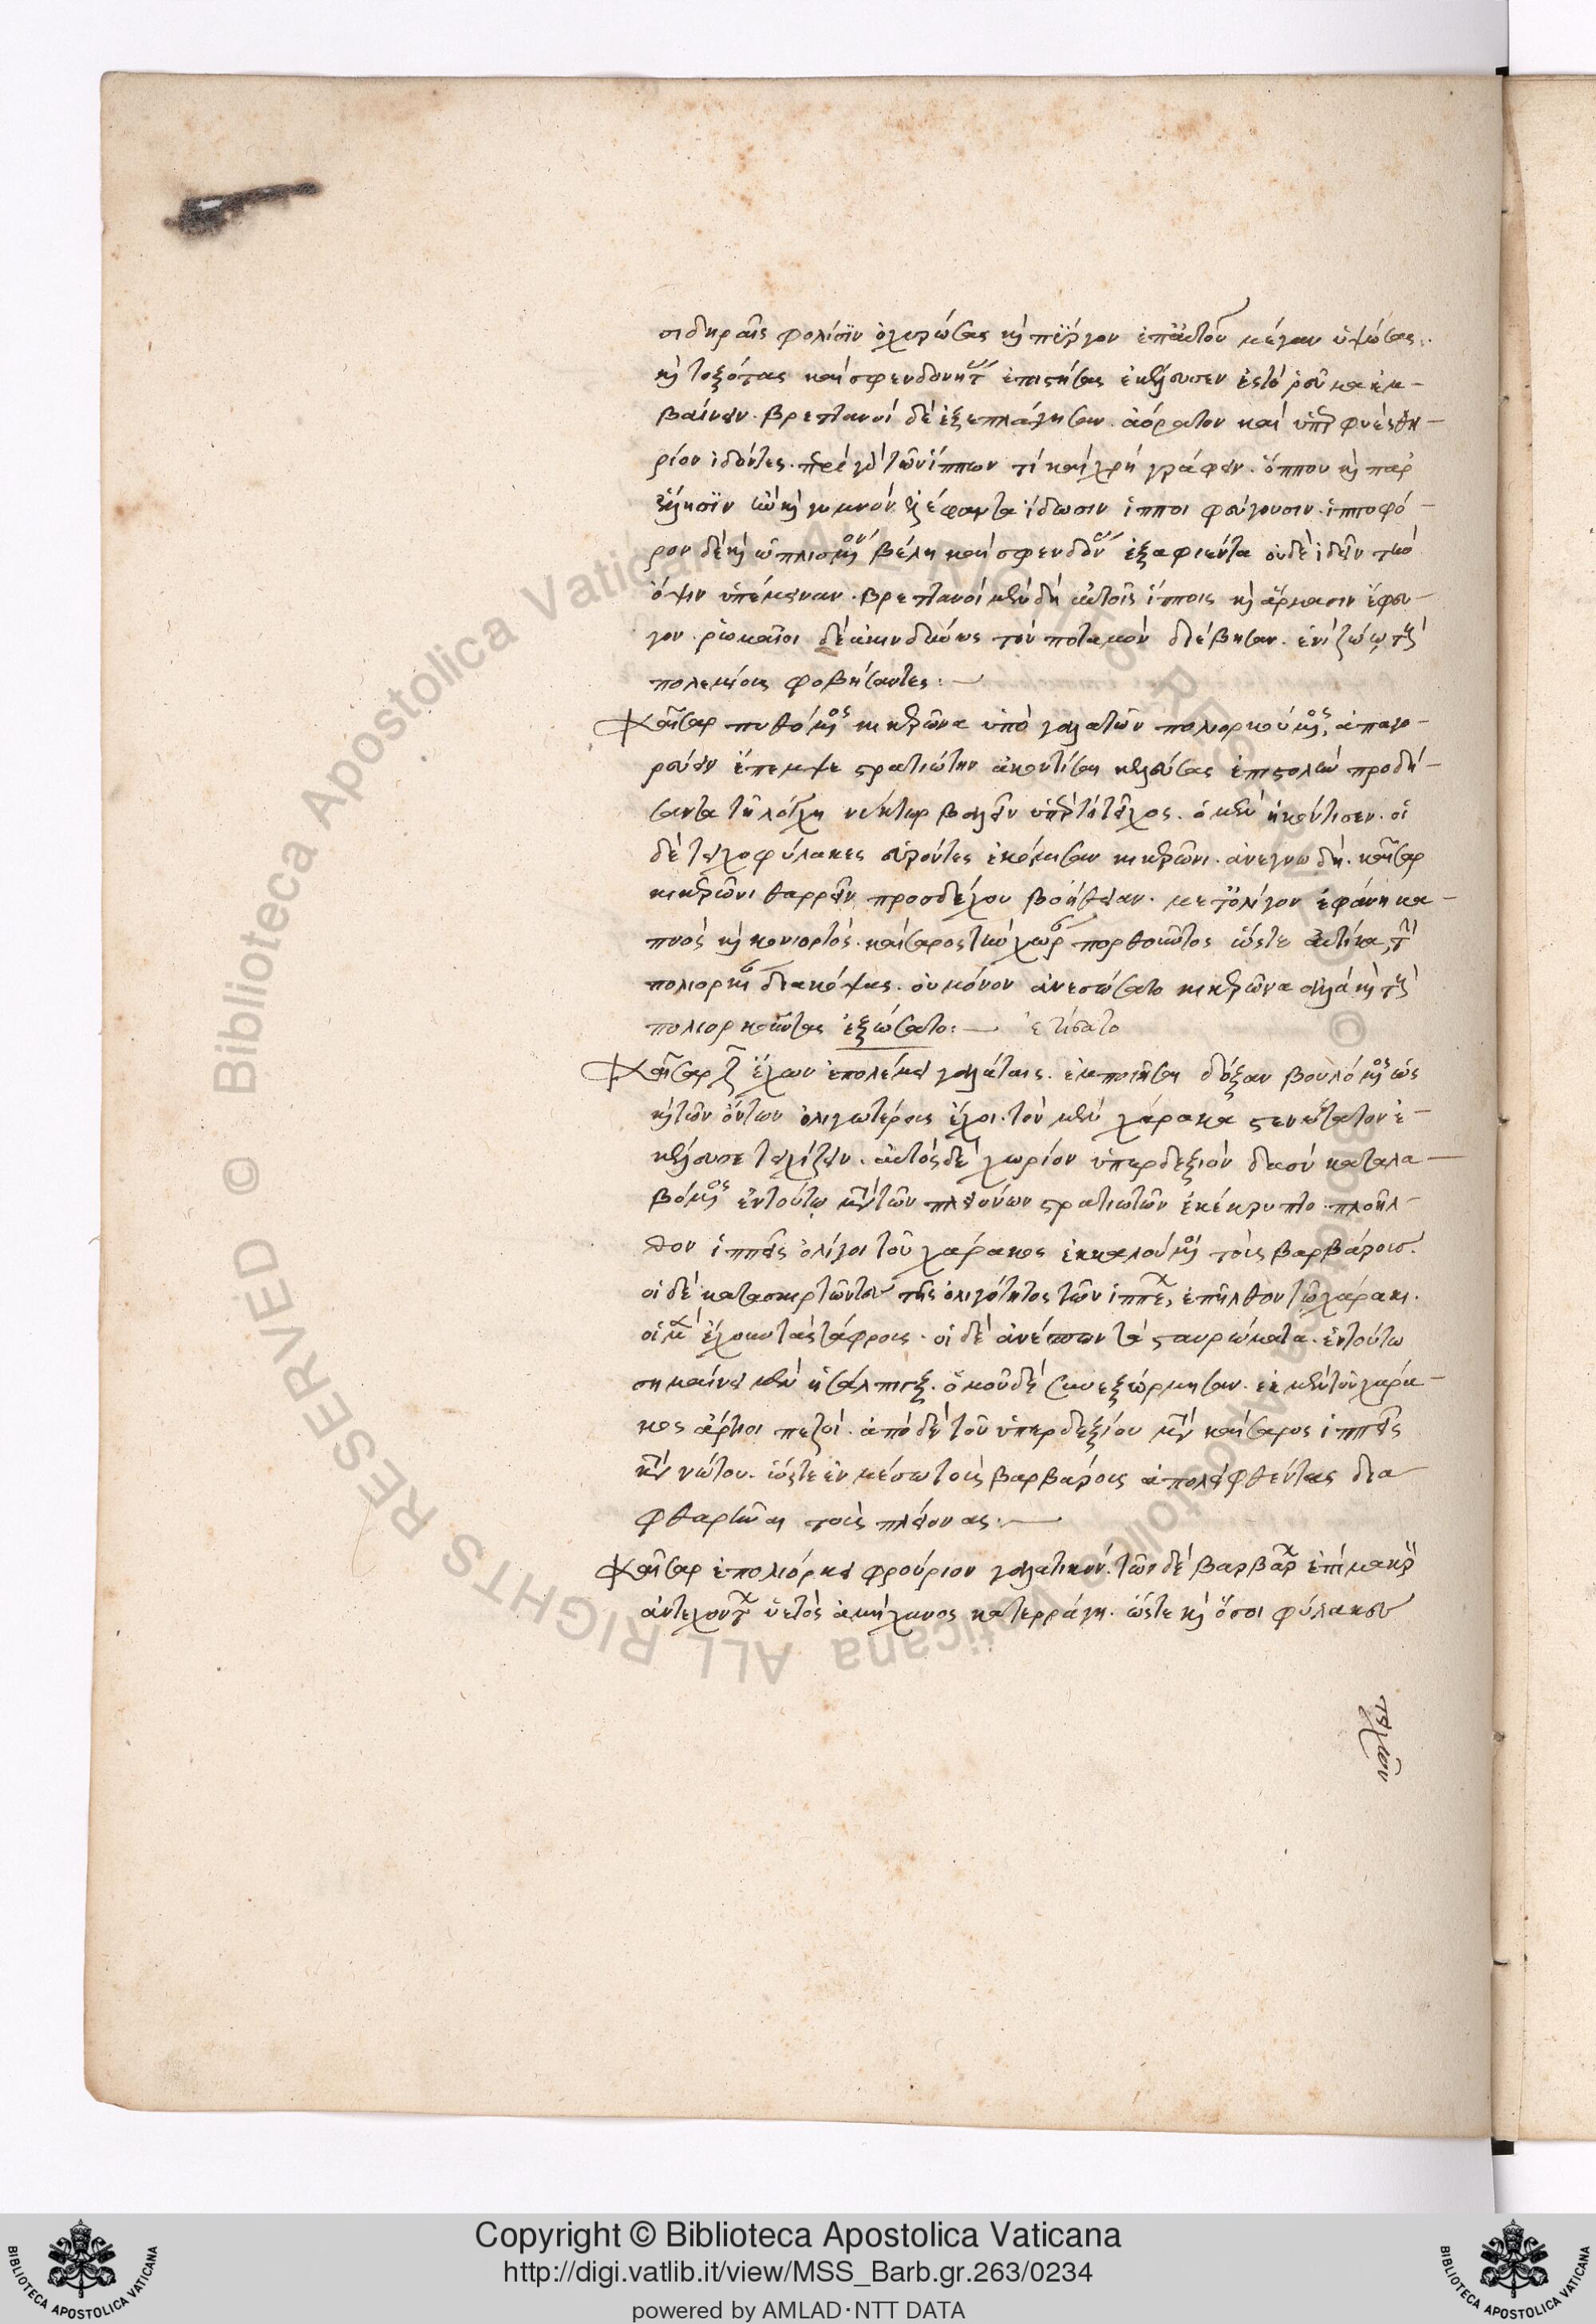 σιδηραῖς φολίσιν ὀχυρώσας καὶ πύργον ἐπ' αὐτοῦ μέγαν ὑψώσας.
καὶ τοξότας καὶ σφενδονήτας ἐπιστήσας ἐκέλευσεν ἐς τὸ ῥεῦμα ἐμ-
βαίνειν. βρεττανοὶ δὲ ἐξεπλάγησαν. ἀόρατον καὶ ὑπερφυὲς θη-
ρίον ἰδόντες. περὶ γὰρ τῶν ἵππων τί καὶ χρὴ γράφειν. ὅππου καὶ παρ'
ἕλλησιν ἂν καὶ γυμνὸν ἐλέφαντα ἴδωσιν ἵπποι φεύγουσιν. πυργοφό-
ρον δὲ καὶ ὡπλισμένον βέλη καὶ σφενδόνας ἐξαφιέντα οὐδὲ ἰδεῖν τὴν
ὄψιν ὑπέμειναν. βρεττανοὶ μὲν δὴ αὐτοῖς ἵπποις καὶ ἅρμασιν ἔφευ-
γον. ῥωμαῖοι δὲ ἀκινδύνως τὸν ποταμὸν διέβησαν. ἑνὶ ζώῳ τοὺς
πολεμίους φοβήσαντες:
Καῖσαρ πυθόμενος κικέρωνα ὑπὸ γαλατῶν πολιορκούμενος, ἀπαγο-
ρεύειν ἔπεμψε στρατιώτην ἀκοντίσαι κελεύσας ἐπιστολὴν προσδή-
σαντα τῇ λόγχῃ νύκτωρ βαλεῖν ὑπὲρ τὸ τεῖχος. ὁ μὲν ἠκόντισεν. οἱ
δὲ τειχοφύλακες εὑρόντες ἐκόμισαν κικέρωνι. ἀνεγνω δὴ. καῖσαρ
κικέρωνι θαρρεῖν προσδέχου βοήθειαν. μετ' ὀλίγον ἐφάνη κα-
πνὸς καὶ κονιορτὸς. καίσαρος τὴν χώραν πορθοῦντος ὥστε αὐτίκα, τὴν
πολιορκίαν διακόψας. οὐ μόνον ἀνεσώσατο κικέρωνα ἀλλὰ καὶ τοὺς
πολιορκοῦντας ἐξώσατο: ἐτίσατο
Καῖσαρ ζ ἔχων ἐπολέμει γαλάταις. ἐμποιῆσαι δόξαν βουλόμενος ὡς
καὶ τῶν ὄντων ὀλιγωτέρους ἔχοι. τὸν μὲν χάρακα στενώτατον ἐ-
κέλευσε τειχίζειν. αὐτὸς δὲ χωρίον ὑπερδεξιὸν δασὺ καταλα-
βόμενος ἐν τούτῳ μετὰ τῶν πλειόνων στρατιωτῶν ἐκέκρυπτο. προῆλ-
θον ἱππεῖς ὀλίγοι τοῦ χάρακος ἐκκαλούμενοι τοὺς βαρβάρους.
οἱ δὲ κατασκιρτῶντες τῆς ὀλιγότητος τῶν ἱππέων, ἐπῆλθον τῷ χάρακι.
οἱ μὲν ἔχουν τὰς τάφρους. οἱ δὲ ἀνέσπων τὰ σταυρώματα. ἐν τούτῳ
σημαίνει μὲν ἡ σάλπιγξ. ὁμοῦ δὲ συνεξώρμησαν. ἐκ μὲν τοῦ χάρα-
κος ἄρτιοι πεζοί. ἀπὸ δὲ τοῦ ὑπερδεξίου μετὰ καίσαρος ἱππεῖς
κατὰ νώτου. ὥστε ἐν μέσῳ τοὺς βαρβάρους ἀπολειφθέντας δια
φθαρῆναι τοὺς πλείονας:
Καῖσαρ ἐπολιόρκει φρούριον γαλατικόν. τῶν δὲ βαρβάρων ἐπὶ μακρὸν
ἀντεχόντων ὑετὸς ἀμήχανος κατερράγη. ὥστε καὶ ὅσοι φύλακες
τειχῶν
Copyright © Biblioteca Apostolica Vaticana
http://digi.vatlib.it/view/MSS_Barb.gr.263/0234
powered by AMLAD·NTT DATA